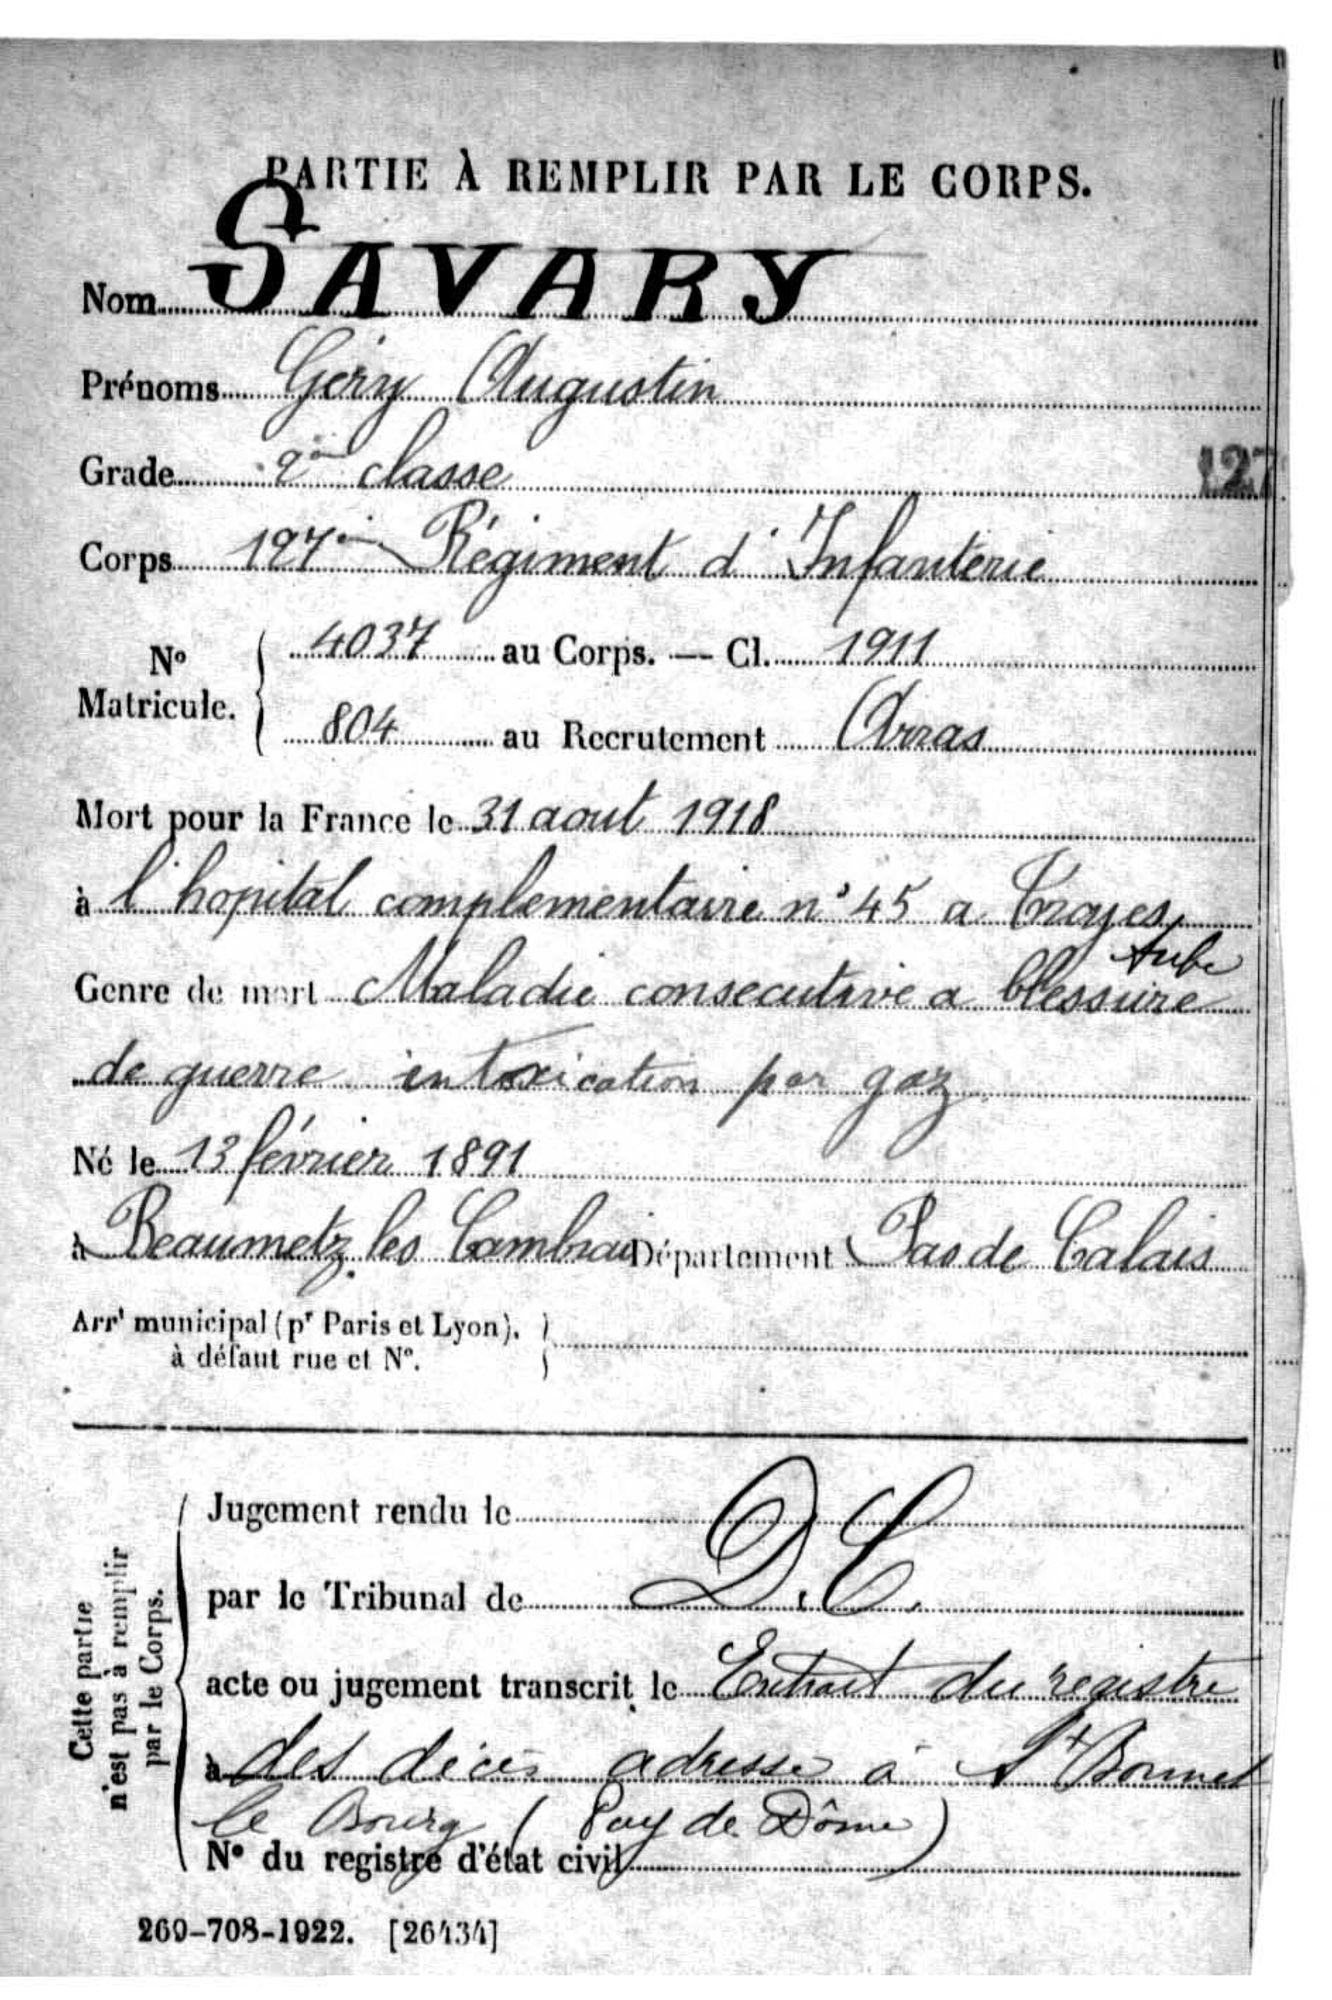 PARTIE À REMPLIR PAR LE CORPS.
Nom SAVARY
Prénoms Géry Augustin
Grade 2e classe
127
Corps 127e Régiment d'Infanterie
No Matricule. { 4037 au Corps. — Cl. 1911
804 au Recrutement Arras
Mort pour la France le 31 aout 1918
à l'hopital complementaire n° 45 a Troyes,
Aube
Genre de mort Maladie consecutive a blessure
de guerre intoxication par gaz
Né le 13 février 1891
à Beaumetz les Cambrai Département Pas de Calais
Arrt municipal (pr Paris et Lyon), }
à défaut rue et No.
Cette partie
n'est pas à remplir
par le Corps.
Jugement rendu le
D.C.
par le Tribunal de
acte ou jugement transcrit le Extrait du registre
à des décès adresse à St Bonnet
le Bourg (Puy de Dôme)
No du registre d'état civil
269-708-1922. [26434]